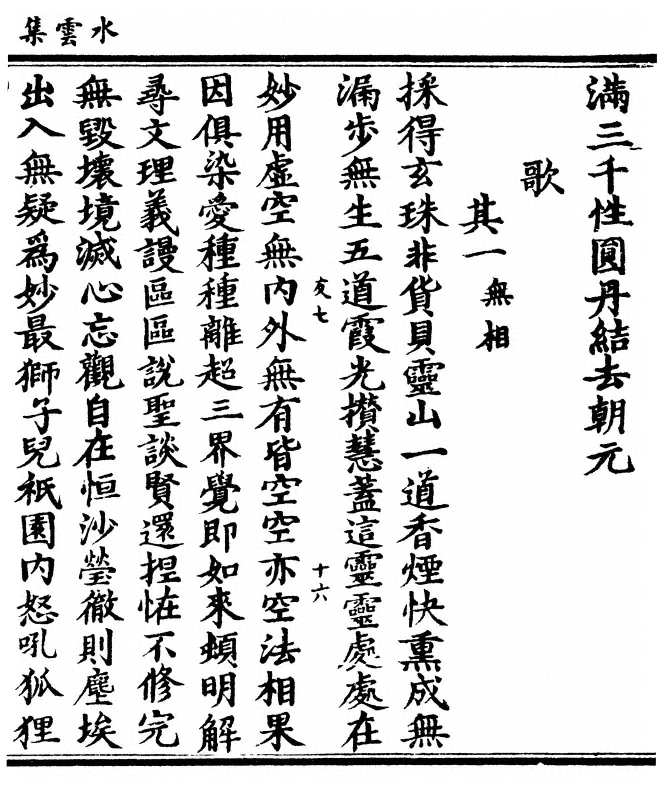 水雲集
滿三千性圓丹結去朝元
歌
其一無相
採得玄珠非貨貝靈山一道香煙快熏成無
漏步無生五道霞光攢慧蓋這靈靈處處在
妙用虛空無內外無有皆空空亦空法相果
亥七
十六
因俱染愛種種離超三界覺即如來頓明解
尋文理義謾區區說聖談賢還捏恠不修完
無毀壞境滅心忘觀自在恒沙瑩徹則塵埃
出入無疑爲妙最獅子兒祇園內怒吼狐狸